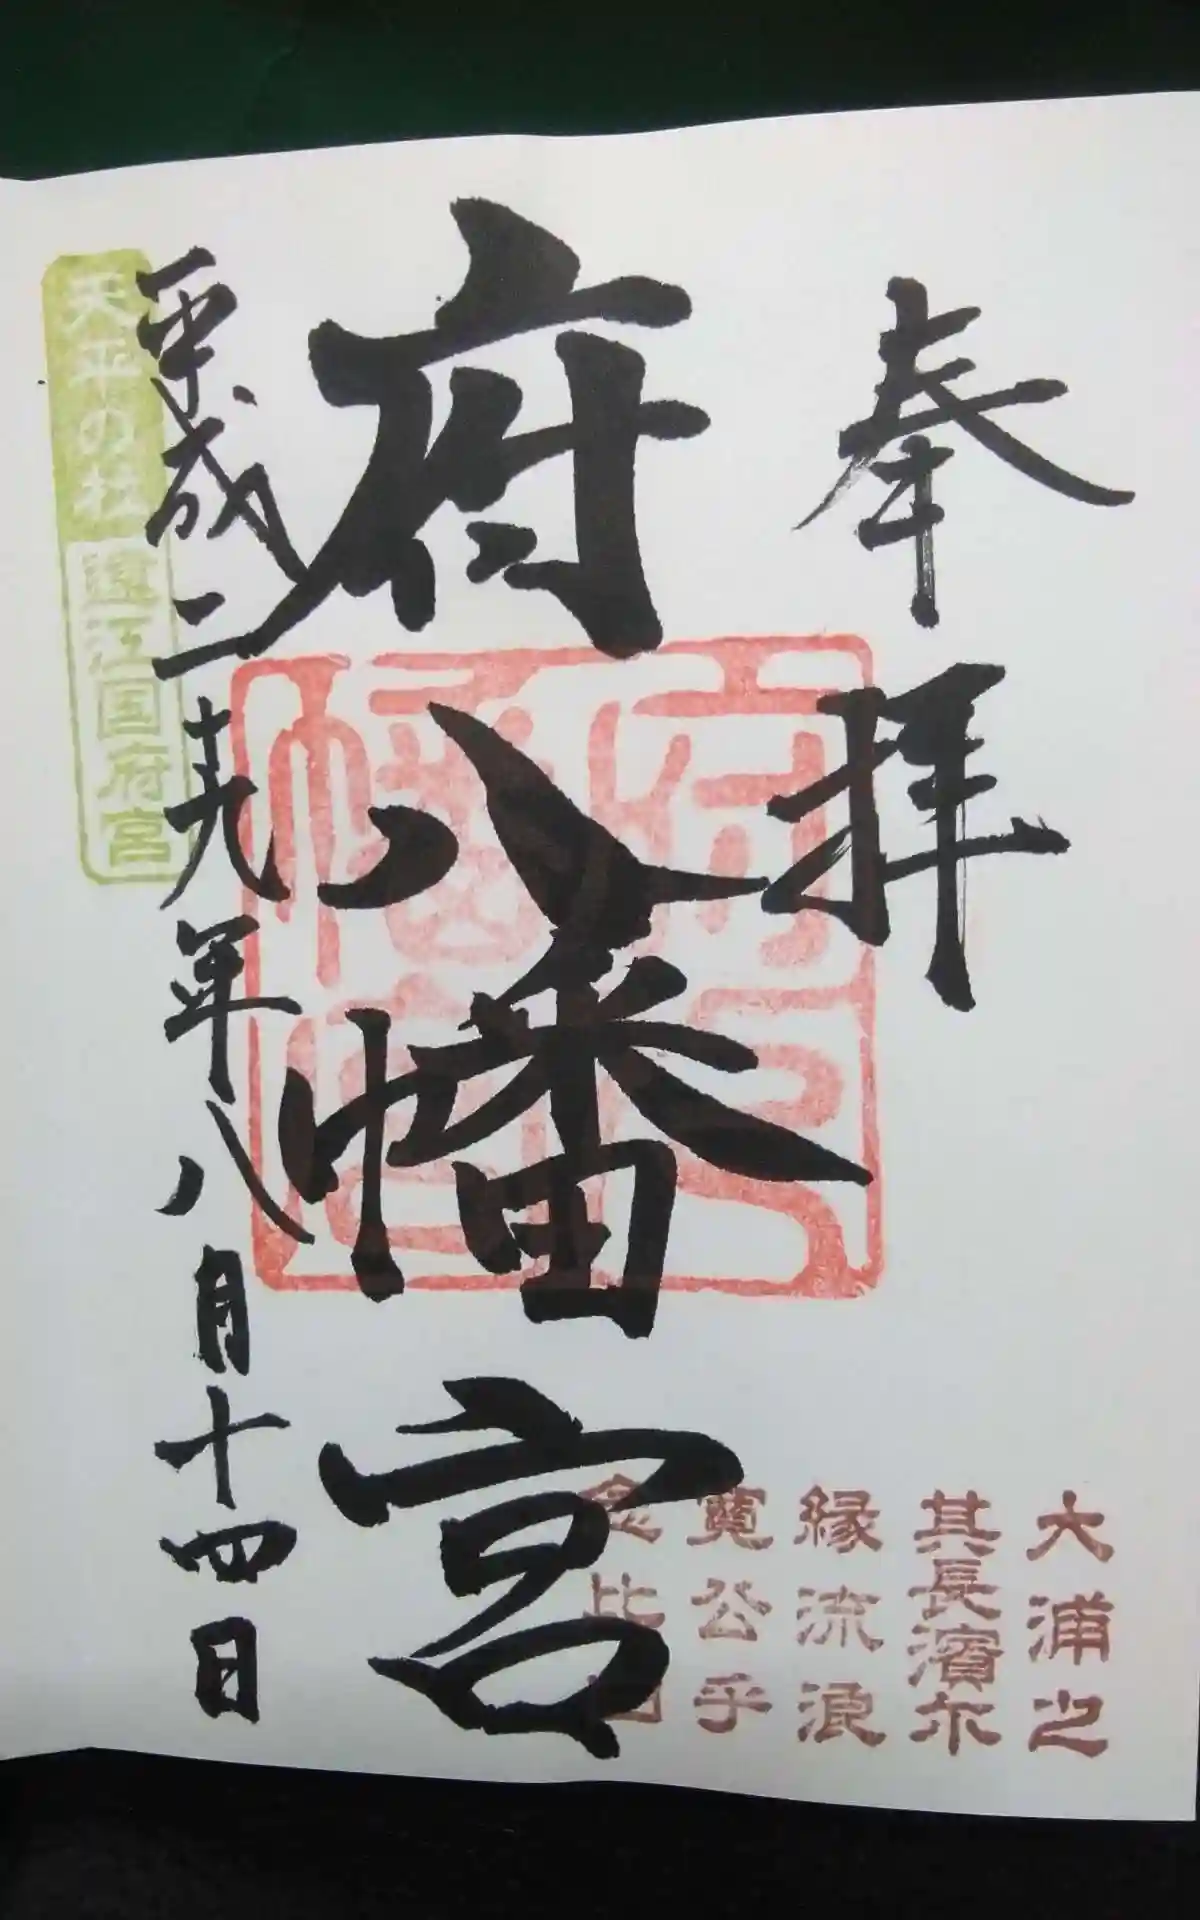 奉拝
大浦之
其長濱尓
縁流浪
寛公乎
念比日
府八幡宮
府八
幡宮
平成二十九年八月十四日
天平の杜 遠江国府宮